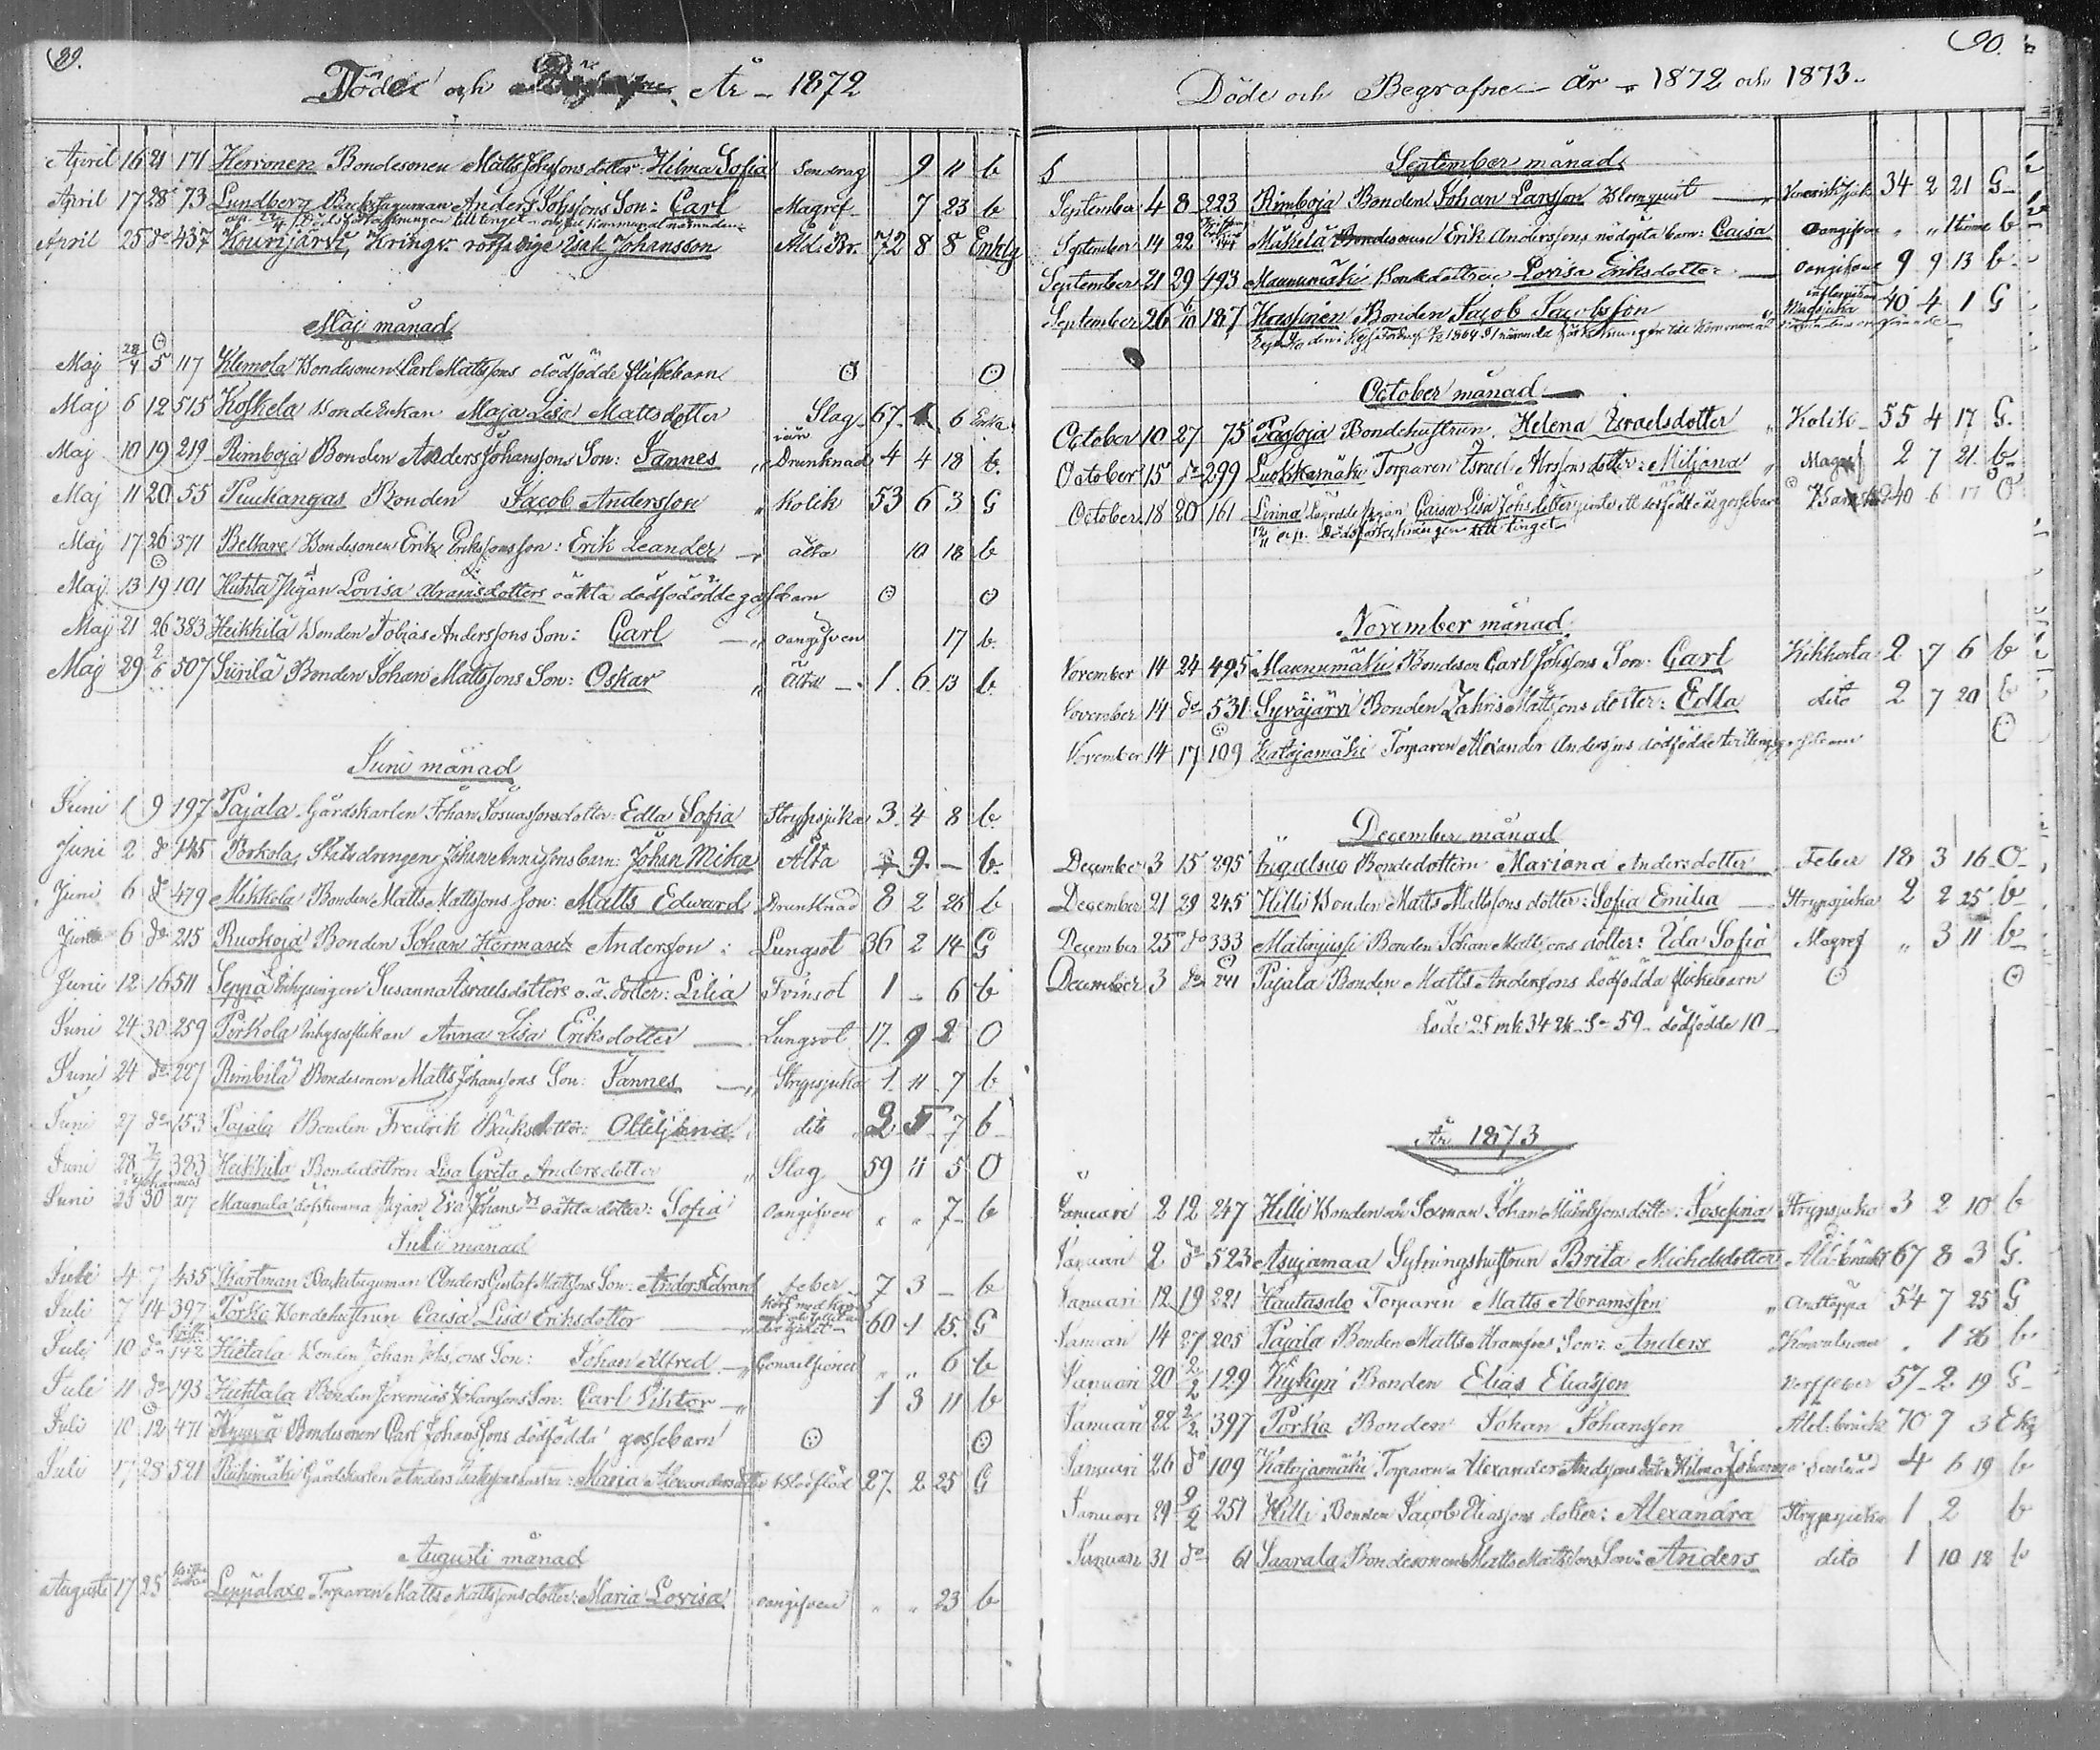 89.
Döde och Begrafne År - 1872
April 16 21 171 Herronen Bondesonen Matts Johssons dotter: Hilma Sofia 9 11 b
April 17 28 73 Lundberg Backstuguman Anders Johssons Son: Carl Magref 7 23 b
April 25 do 437 Knurijärvi, Kringv. rotfattige Isak Johansson Åld. Br. 72 8 8 Enklg
Maj månad
Maj 28/4 5 117 Klemola Bondesonen Carl Mattssons dödfödde flickebarn
Maj 6 12 515 Koskela Bonde Enkan Maja Lisa Mattsdotter Slag 67 1 6 Enka
Maj 10 19 219 Rimboja Bonden Anders Johanssons Son: Jannes Drunknad 4 4 18 b
Maj 11 20 55 Puukangas Bonden Jacob Andersson Kolik 53 6 3 G
Maj 17 26 371 Beltare Bondesonen Erik Erikssons son: Erik Leander älta 10 18 b
Maj 13 19 101 Huhta pigan Lovisa Abramsdotters oäkta dödfödde gossebarn
Maj 21 26 383 Heikkilä Bonden Tobias Anderssons Son: Carl oangifven 17 b
Maj 29 2/6 507 Siirilä Bonden Johan Mattssons Son: Oskar älta 1 6 13 b
Juni månad
Juni 1 9 197 Pajala Gårdskarlen Johan Josuassons dotter: Edla Sofia Strypsjuka 3 4 8 b
Juni 2 do 145 Porkola, Statsdrengen Johan Annissons barn: Johan Mika Älta 9 - b
Juni 6 do 479 Mikkola Bonden Matts Mattssons son: Matts Edward Drunknad 8 2 26 b
Juni 6 do 215 Ruohoja Bonden Johan Hermans Andersson: Lungsot 36 2 14 G
Juni 12 16 511 Seppä Inhysingen Susanna Israelsdotters o.ä. dotter: Lilia Tvinsot 1 - 6 b
Juni 24 30 259 Porkola Inhysesflickan Anna Lisa Eriksdotter Lungsot 17 9 2 O
Juni 24 do 227 Rimbilä Bondesonen Matts Johanssons Son: Jannes Strypsjuka 1 11 7 b
Juni 27 do 153 Pajala Bonden Fredrik Bäcks dotter: dito 2 5 7 b
Juni 28 7/7 383 Heikkilä Bondedottren Lisa Greta Andersdotter Slag 59 11 5 O
Juni 23 30 217 Maunula döfstumma pigan Eva Johans dr oäkta dotter: Sofia oangifven " " 7 b
Juli månad
Juli 4 7 435 Skartman Backstuguman Anders Gustaf Mattssons Son: Anders Edvard feber 7 3 - b
Juli 7 14 397 Porko Bondehustrun Caisa Lisa Eriksdotter 60 1 15 G
Juli 10 do 142 Hietala Bonden Johan Johssons Son: Johan Alfred Convulsioner " " 6 b
Juli 11 do 193 Huhtala Bonden Jeremias Johanssons Son: Carl Viktor 1 3 11 b
Juli 10 12 471 Bondesonen Carl Johanssons dödfödda gossebarn
Juli 17 28 521 Riihimäki Gårdskarlen Anders hustru: Maria Alexandersdotter Blodflöd 27 2 25 G
Augusti månad
Augusti 17 25 Leppälaxo Torparen Matts Mattssons dotter: Maria Lovisa oangifven " " 23 b
90.
Döde och Begrafne år 1872 och 1873
September månad
September 4 8 223 Rimboja Bonden Johan Larsson Blomquist 34 2 21 G
September 14 22 Mäkelä Bondesonen Erik Anderssons nödöpta barn: Caisa Oangifven " " 1 timme b
September 21 29 493 Maunumäki Bondedottren Lovisa Eriksdotter Oangifven 9 9 13 b
September 26 6/10 187 Kossinen Bonden Jacob Jacobsson Magsjuka 40 4 1 G
October månad
October 10 27 75 Pagoja Bondehustrun Helena Israelsdotter Kolik 55 4 17 G.
October 15 do 299 Luokkamäki Torparen Israel Abrssons dotter: Miljana Magref 2 7 21 b
October 18 20 161 Linna lägrade pigan Caisa Lisa Johsdotter jemte ett dödfödt o.ä. gossebarn 40 6 17 O
Dödsförteckningen till tinget
November månad
November 14 24 495 Maunumäki Bondeson Carl Johssons Son: Carl Kikhosta 2 7 6 b
November 14 do 531 Syväjärvi Bonden Zakris Mattssons dotter: Edla dito 2 7 20 b
November 14 17 109 Katajamäki Torparen Alexander Anderssons dödfödde
December månad
December 3 15 395 Bondedottern Mariana Andersdotter Feber 18 3 16 O
December 21 29 245 Hilli Bonden Matts Mattssons dotter: Sofia Emilia Strypsjuka 2 2 25 b
December 25 do 333 Bonden Johan Mattssons dotter: Eda Sofia Magref " 3 11 b
December 3 do 241 Pajala Bonden Matts Anderssons dödfödda flickebarn
döde 25 mk 34 qk S:a 59 - dödfödde 10
År 1873
Januari 2 12 247 Hilli Bonden och Sexman Johan Mickelssons dotter: Josefina Strypsjuka 3 2 10 b
Januari 2 do 523 Asujamaa Sytningshustrun Brita Michelsdotter Åld.bräckl 67 8 3 G.
Januari 12 19 221 Hautasalo Torparen Matts Abramsson Andtäppa 54 7 25 G
Januari 14 27 205 Pajala Bonden Matts Abramssons Son: Anders Konvulsioner 1 26 b
Januari 20 2/2 129 Kykyri Bonden Elias Eliasson Nerffeber 57 2 19 G
Januari 22 2/2 397 Porko Bonden Johan Johansson Åld.bräck 70 7 3 Ekg
Januari 26 do 109 Katajamäki Torparen Alexander Anderssons dotter Hilma Johanna 4 6 19 b
Januari 29 9/2 251 Hilli Bonden Jacob Eliassons dotter: Alexandra Strypsjuka 1 2 b
Januari 31 do 61 Saarala Bondesonen Matts Mattssons Son: Anders dito 1 10 12 b